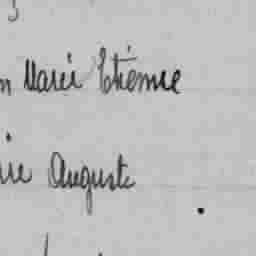 Marie Etienne
Auguste